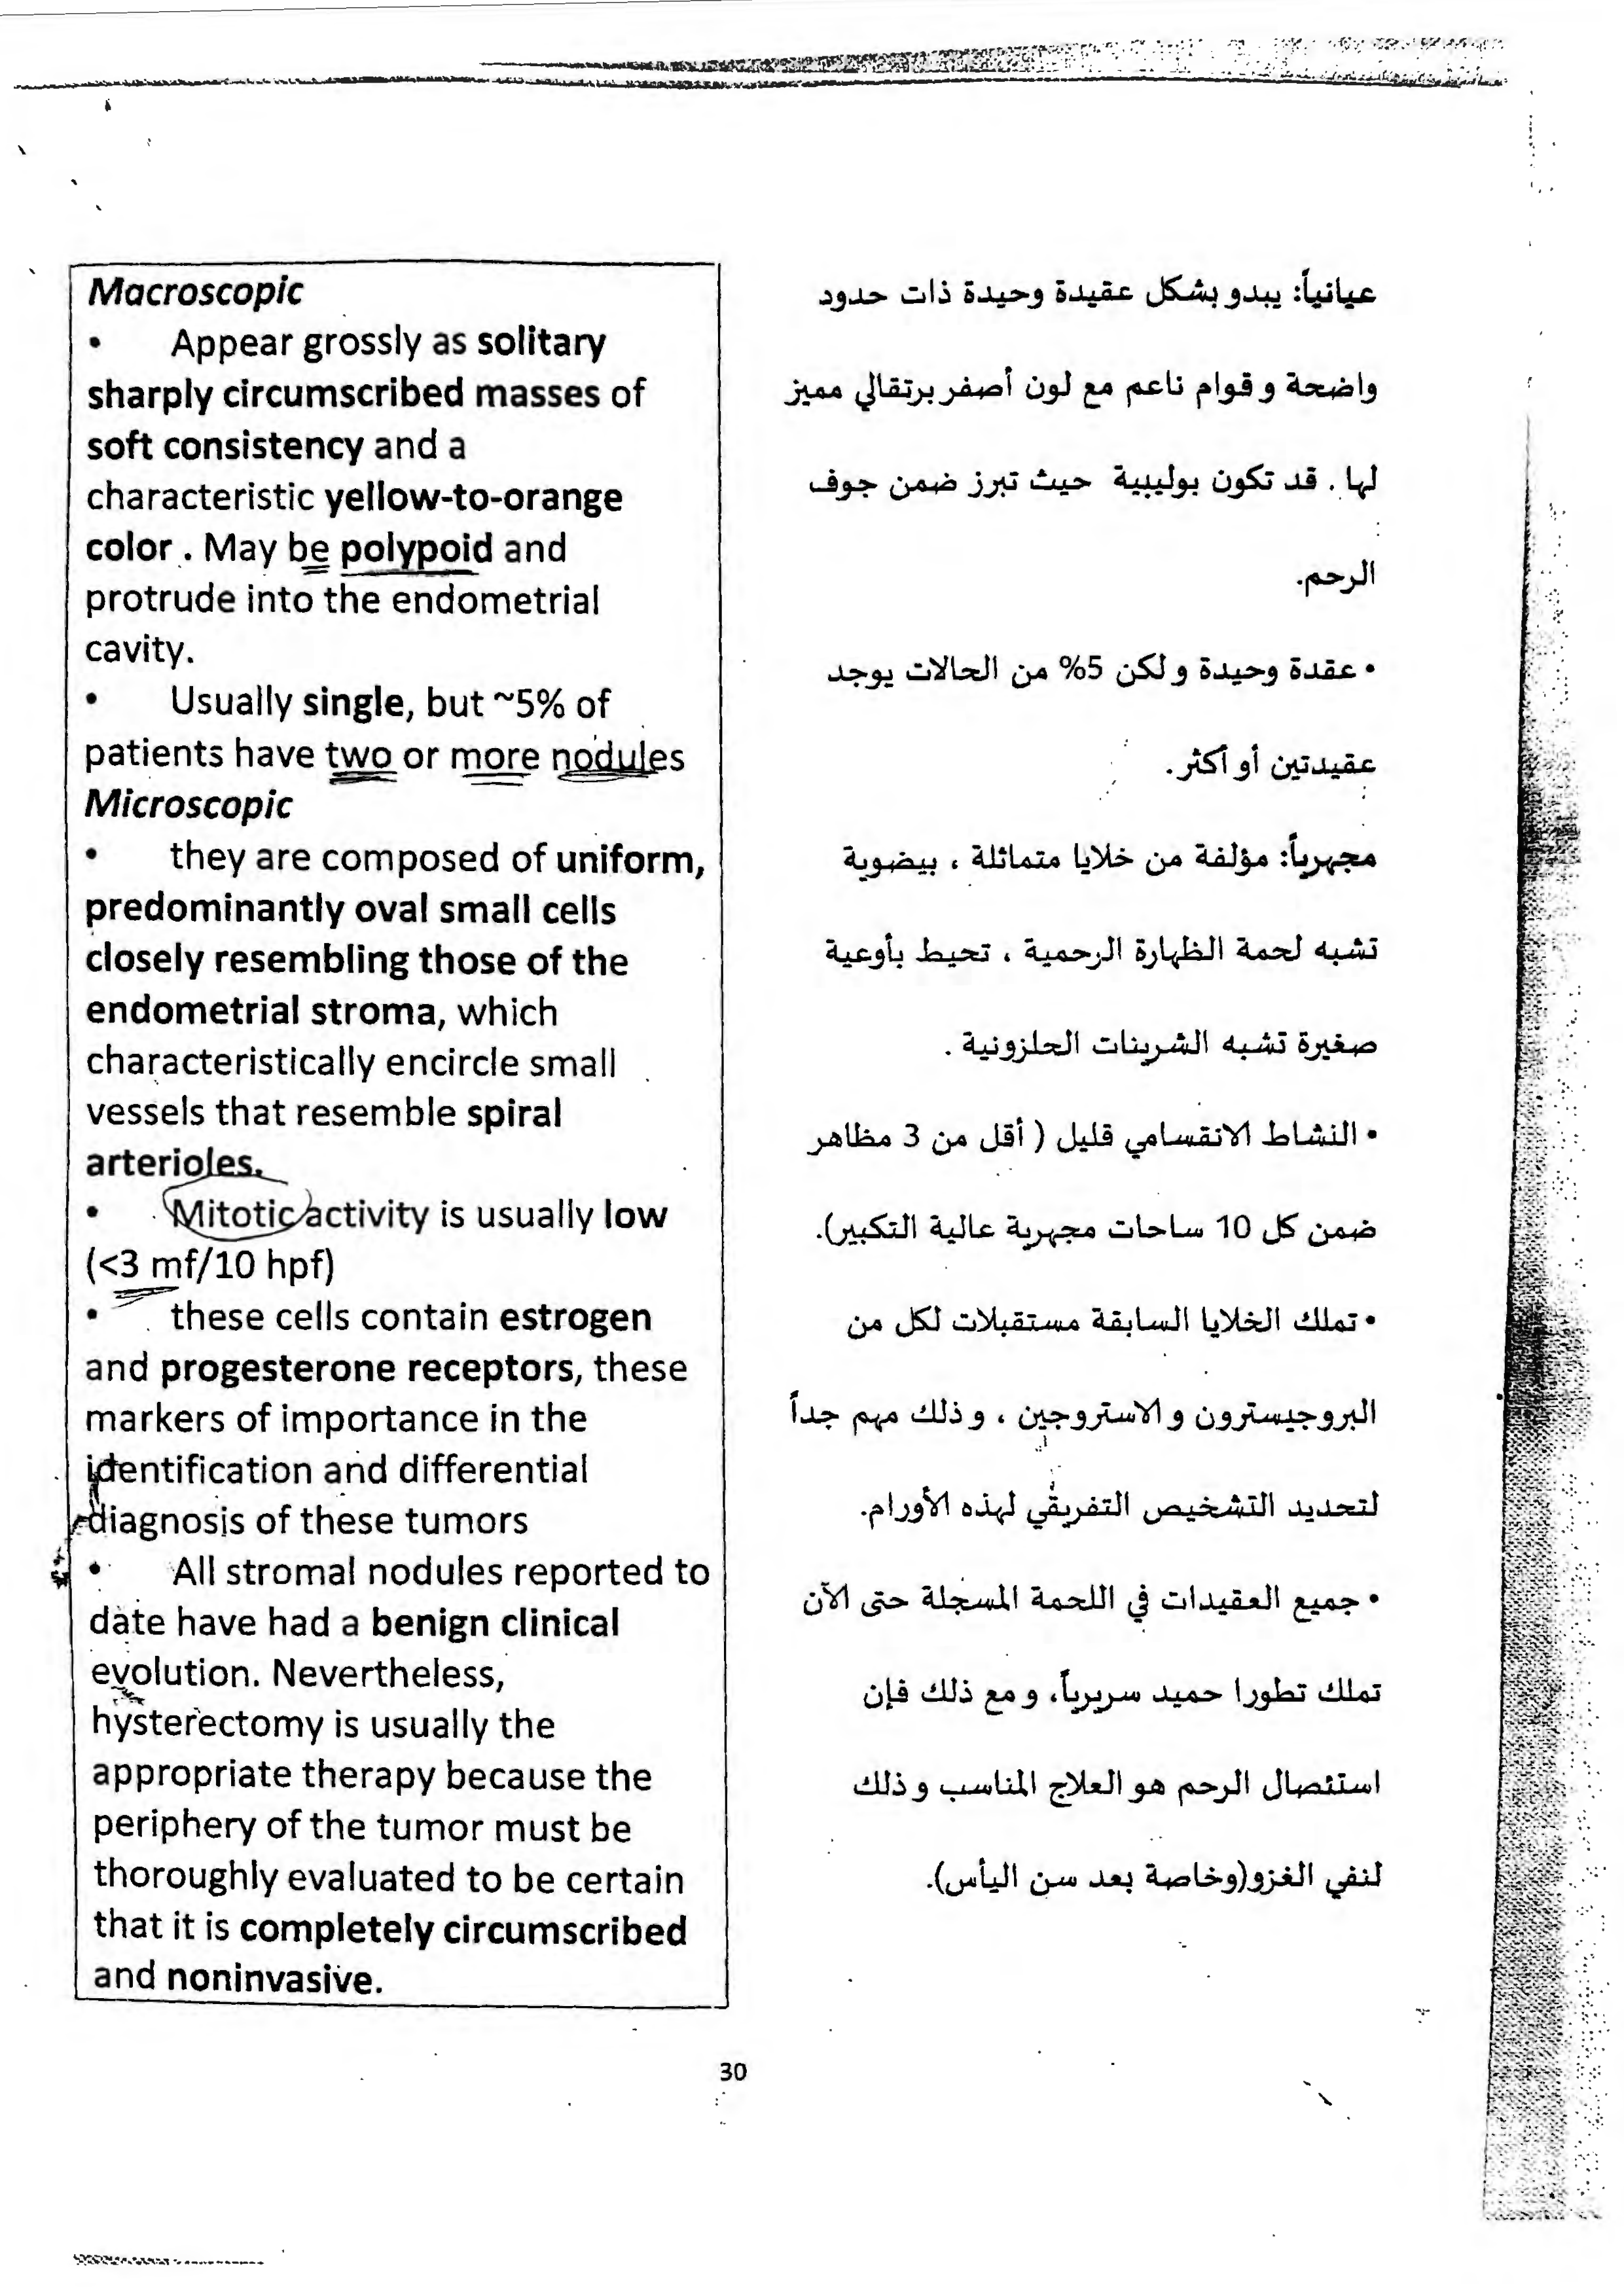 Macroscopic
• Appear grossly as solitary
sharply circumscribed masses of
soft consistency and a
characteristic yellow-to-orange
color . May be polypoid and
protrude into the endometrial
cavity.
• Usually single, but ~5% of
patients have two or more nodules
Microscopic
• they are composed of uniform,
predominantly oval small cells
closely resembling those of the
endometrial stroma, which
characteristically encircle small
vessels that resemble spiral
arterioles.
• Mitotic activity is usually low
(<3 mf/10 hpf)
• these cells contain estrogen
and progesterone receptors, these
markers of importance in the
identification and differential
diagnosis of these tumors
• All stromal nodules reported to
date have had a benign clinical
evolution. Nevertheless,
hysterectomy is usually the
appropriate therapy because the
periphery of the tumor must be
thoroughly evaluated to be certain
that it is completely circumscribed
and noninvasive.
عيانياً: يبدو بشكل عقيدة وحيدة ذات حدود
واضحة و قوام ناعم مع لون أصفر برتقالي مميز
لها . قد تكون بوليبية حيث تبرز ضمن جوف
الرحم.
• عقدة وحيدة و لكن 5% من الحالات يوجد
عقيدتين أو أكثر.
مجهرياً: مؤلفة من خلايا متماثلة ، بيضوية
تشبه لحمة الظهارة الرحمية ، تحيط بأوعية
صغيرة تشبه الشرينات الحلزونية .
• النشاط الانقسامي قليل ( أقل من 3 مظاهر
ضمن كل 10 ساحات مجهرية عالية التكبير).
• تملك الخلايا السابقة مستقبلات لكل من
البروجيسترون و الاستروجين ، و ذلك مهم جداً
لتحديد التشخيص التفريقي لهذه الأورام.
• جميع العقيدات في اللحمة المسجلة حتى الآن
تملك تطورا حميد سريرياً، و مع ذلك فإن
استئصال الرحم هو العلاج المناسب و ذلك
لنفي الغزو(وخاصة بعد سن اليأس).
30